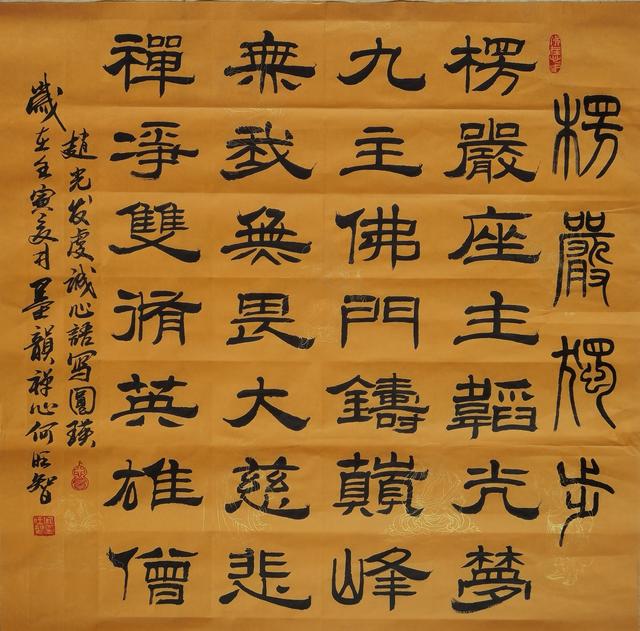 楞嚴獨步
楞嚴座主韜光夢
九主佛門鑄巔峰
無我無畏大慈悲
禪淨雙脩英雄僧
趙光发虔誠心語写圓瑛
歲在壬寅亥月墨韻禅心何旺智